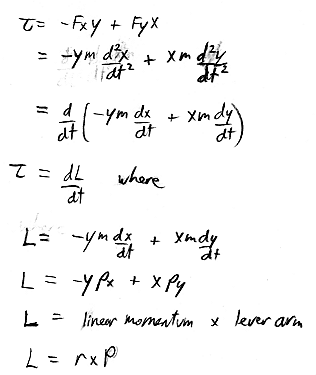 τ = -Fxy + Fyx
= -ym d²x/dt² + xm d²y/dt²
= d/dt (-ym dx/dt + xm dy/dt)
τ = dL/dt where
L = -ym dx/dt + xm dy/dt
L = -y Px + x Py
L = linear momentum x lever arm
L = r x P